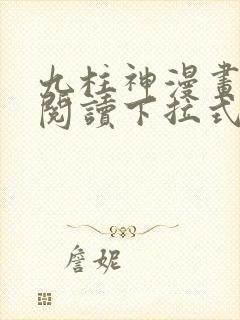 九柱神漫畫
閱讀下拉式
詹妮